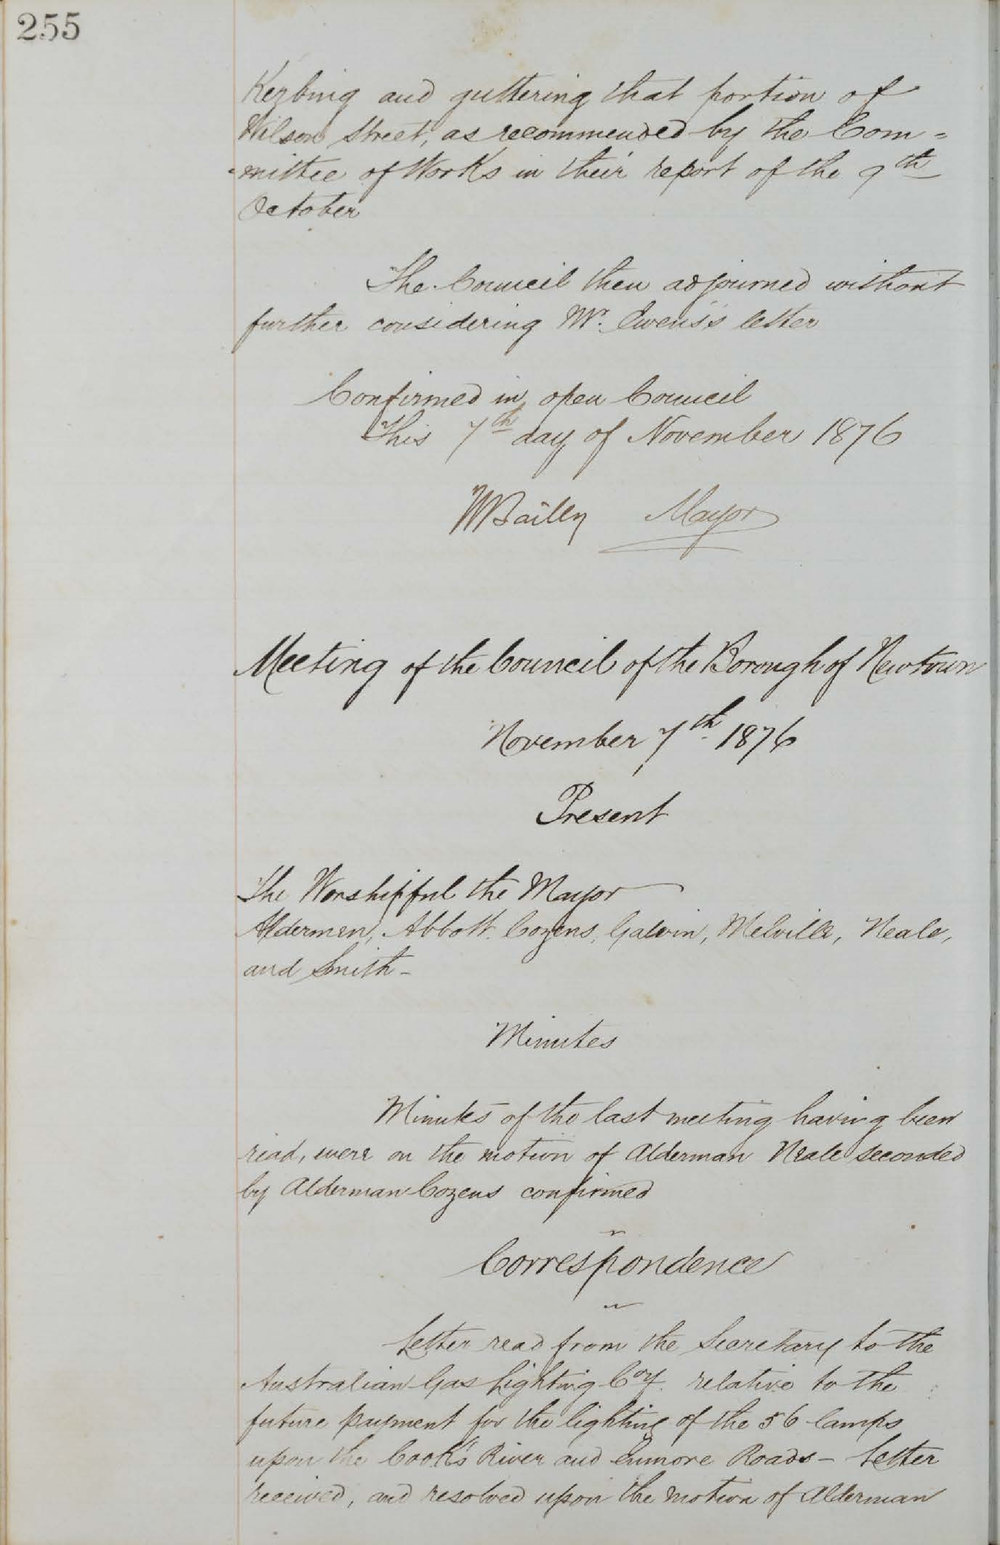 255
Kerbing and guttering that portion of
Wilson Street, as recommended by the Com=
-mittee of Works in their report of the 9th
October
The Council then adjourned without
further considering Mr. Ewens's letter
Confirmed in open Council
This 7th day of November 1876
WBailly Mayor
Meeting of the Council of the Borough of Newtown
November 7th 1876
Present
The Worshipful the Mayor
Aldermen, Abbott, Cozens, Galvin, Melville, Neale,
and Smith -
Minutes
Minutes of the last meeting having been
read, were on the motion of Alderman Neale seconded
by Alderman Cozens confirmed
Correspondence
Letter read from the Secretary to the
Australian Gas Lighting Coy. relative to the
future payment for the lighting of the 56 lamps
upon the Cook's River and Enmore Roads - Letter
received, and resolved upon the motion of Alderman